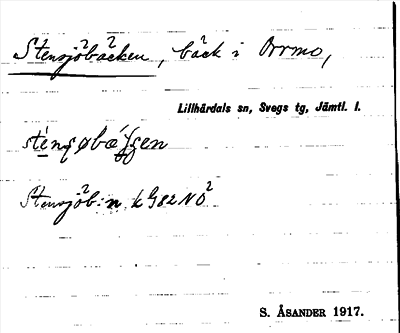 Stensjöbäcken, bäck i Orrmo,
Lillhärdals sn, Svegs tg, Jämtl. l.
Stensjöb:n k G82NO
S. ÅSANDER 1917.